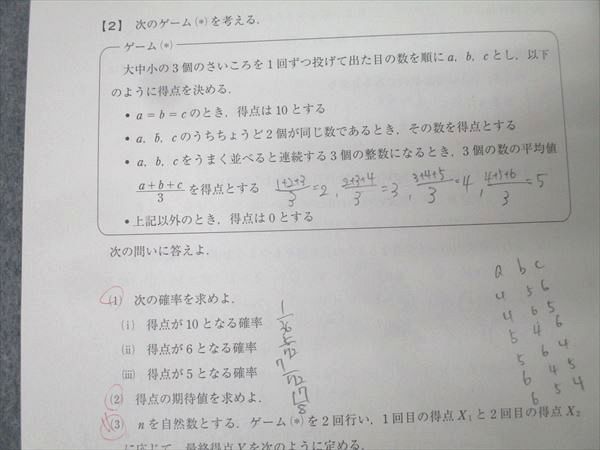 【2】 次のゲーム(*)を考える.
ゲーム(*)
大中小の3個のさいころを1回ずつ投げて出た目の数を順に a, b, c とし, 以下
のように得点を決める.
• a = b = c のとき, 得点は10とする
• a, b, c のうちちょうど2個が同じ数であるとき, その数を得点とする
• a, b, c をうまく並べると連続する3個の整数になるとき, 3個の数の平均値
(a+b+c)/3 を得点とする (1+2+3)/3 = 2, (2+3+4)/3 = 3, (3+4+5)/3 = 4, (4+5+6)/3 = 5
• 上記以外のとき, 得点は0とする
次の問いに答えよ.
(1) 次の確率を求めよ.
(i) 得点が10となる確率 1/36
(ii) 得点が6となる確率 5/72
(iii) 得点が5となる確率 7/72
(2) 得点の期待値を求めよ. 17/8
(3) n を自然数とする. ゲーム(*)を2回行い, 1回目の得点 X₁ と2回目の得点 X₂
に応じて, 最終得点 Y を次のように定める.
a b c
4 5 6
4 6 5
5 4 6
5 6 4
6 4 5
6 5 4